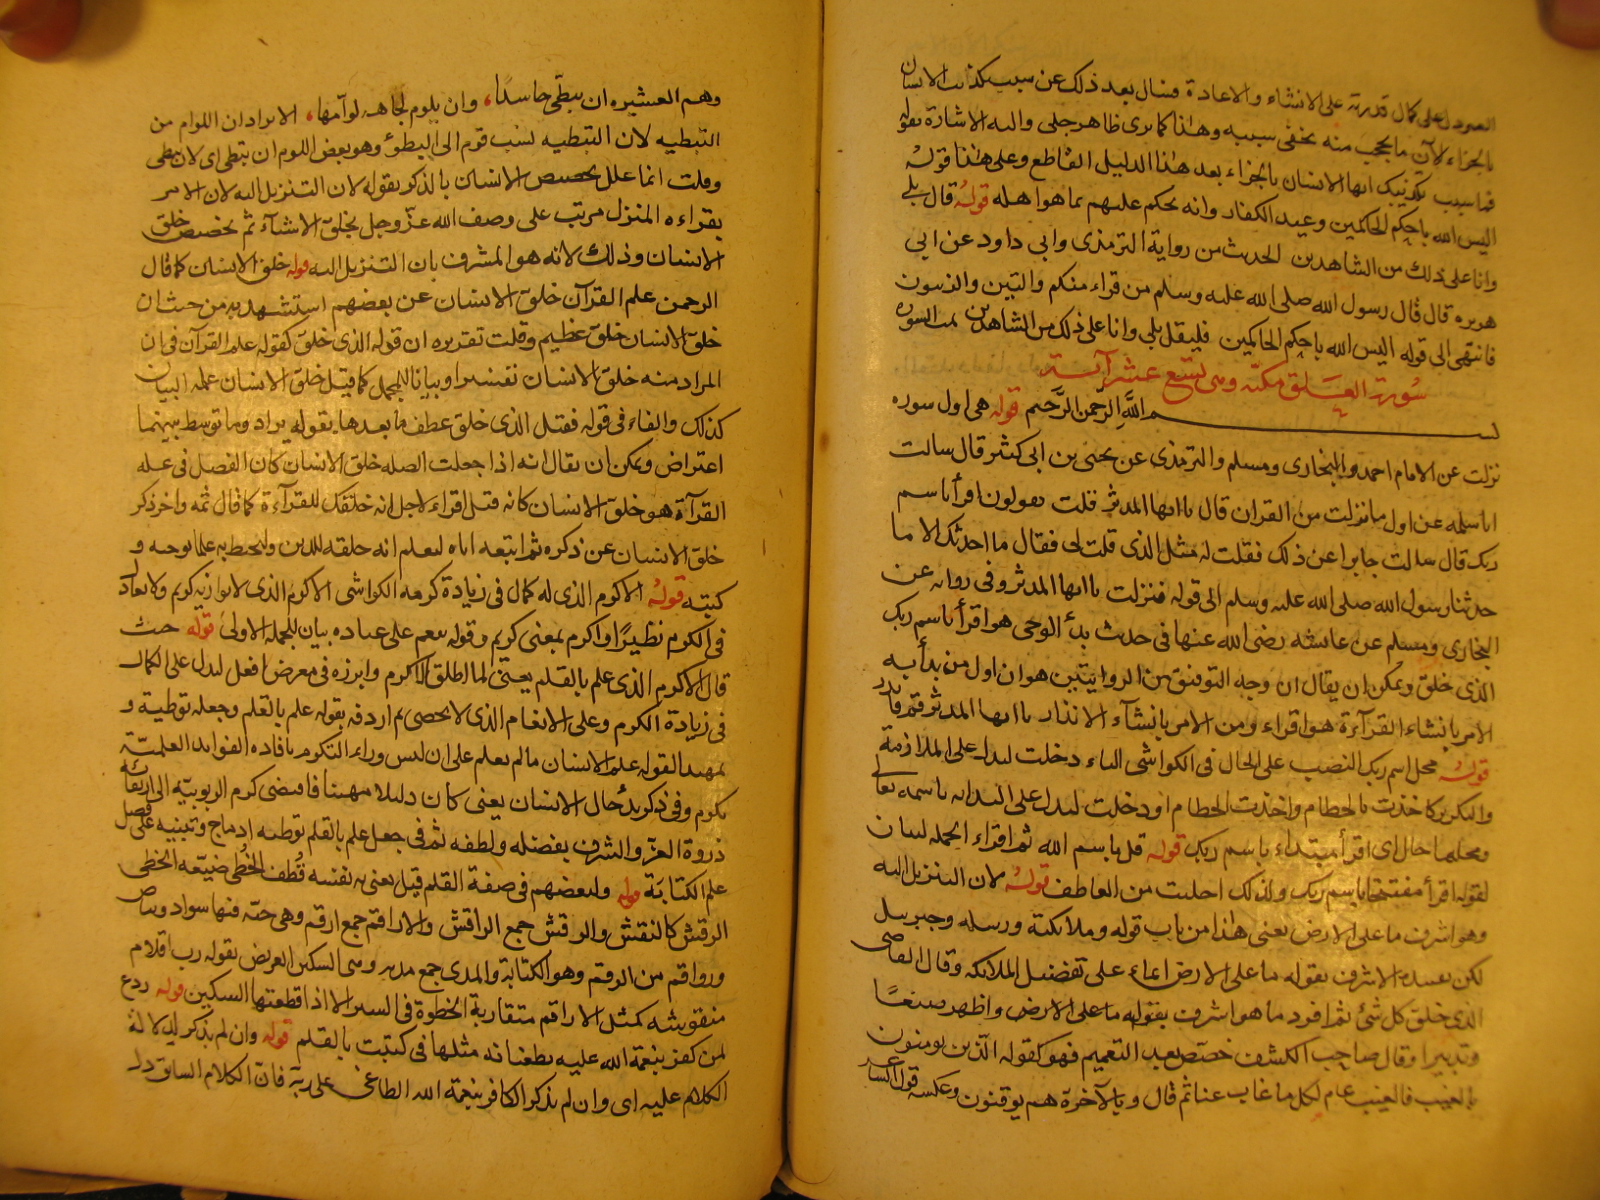 على كمال قدرته على الانشاء والاعادة فسال بعد ذلك عن سبب تكذيب الانسان
بالجزاء لان ما يتعجب منه يخفى سببه وهذا كما ترى ظاهر جلى واليه الاشارة بقوله
فما سبب تكذيبك ايها الانسان بالجزاء بعد هذا الدليل القاطع وعلى هذا قوله
اليس الله باحكم الحاكمين وعيد الكفار وانه يحكم عليهم بما هو اهله قوله قال بلى
وانا على ذلك من الشاهدين الحديث من رواية الترمذى وابى داود عن ابى
هريره قال قال رسول الله صلى الله عليه وسلم من قراء منكم والتين والزيتون
فانتهى الى قوله اليس الله باحكم الحاكمين فليقل بلى وانا على ذلك من الشاهدين تمت السوره
سورة العلق مكية وهى تسع عشر آية
بسم الله الرحمن الرحيم قوله هى اول سوره
نزلت عن الامام احمد والبخارى ومسلم والترمذى عن يحيى بن ابى كثير قال سالت
ابا سلمه عن اول ما نزلت من القران قال يا ايها المدثر قلت يقولون اقرأ باسم
ربك قال سالت جابرا عن ذلك فقلت له مثل الذى قلت لى فقال ما احدثك الا ما
حدثنا رسول الله صلى الله عليه وسلم الى قوله فنزلت يا ايها المدثر وفى رواية عن
البخارى ومسلم عن عايشه رضى الله عنها فى حديث بدأ الوحى هو اقرأ باسم ربك
الذى خلق ويمكن ان يقال ان وجه التوفيق بين الروايتين هو ان اول من بدأ به
الامر بانشاء القرآءة هو اقراء ومن الامر بانشآء الانذار يا ايها المدثر قم فانذر
قوله محل اسم ربك النصب على الحال فى الكواشى الباء دخلت لتدل على الملازمة
والتكرير كاخذت بالخطام واخذت الخطام او دخلت لتدل على البداية باسمه تعالى
ومحلها حال اى اقرأ مبتداء باسم ربك قوله قل باسم الله ثم اقراء الجمله لبيان
لقوله اقرأ مفتتحا باسم ربك ولذلك اخليت من العاطف قوله لان التنزيل اليه
وهو اشرف ما على الارض يعنى هذا من باب قوله وملائكته ورسله وجبريل
لكن تقييده الاشرف بقوله ما على الارض ايماء على تفضيل الملائكه وقال القاضى
الذى خلق كل شئ ثم افرد ما هو اشرف بقوله ما على الارض واظهر صنعًا
وتدبيرا وقال صاحب الكشف خصّص بعد التعميم فهو كقوله الّذين يومنون
بالغيب فالغيب عام لكل ما غاب عنا ثم قال وبالآخرة هم يوقنون وعكسه قول الشاعر
وهم العشيره ان يبطى حاسدًا، وان يلوم لجاهه لوآمها، الايراد ان اللوام من
التبطيه لان التبطيه نسب قوم الى البطؤ وهو بعض اللوم ان يبطى اى لان يبطى
وقلت انما علل تخصيص الانسان بالذكر بقوله لان التنزيل اليه لان الامر
بقراءه المنزل مرتب على وصف الله عزّ وجل بخلق الاشيآء ثم تخصيص خلق
الانسان وذلك لانه هو المشرف بان التنزيل اليه قوله خلق الانسان كما قال
الرحمن علم القرآن خلق الانسان عن بعضهم استشهد به من حيث ان
خلق الانسان خلق عظيم وقلت تقريره ان قوله الذى خلق كقوله علم القرآن فى ان
المراد منه خلق الانسان تفسيرا وبيانا للمجمل كما قيل خلق الانسان علمه البيان
كذلك والفاء فى قوله فقيل الذى خلق عطف ما بعدها بقوله يراد وما توسط بينهما
اعتراض ويمكن ان يقال انه اذا جعلت الصله خلق الانسان كان الفصل فى علة
القرآة هو خلق الانسان كانه قيل اقراء لاجل انه خلقك للقرآءة كما قال ثمه واخر ذكر
خلق الانسان عن ذكره ثم اتبعه اياه ليعلم انه خلقه للدين وليحيط به علما بوحيه و
كتبه قوله الاكرم الذى له كمال فى زيادة كرمه الكواشى الاكرم الذى لا يوازيه كريم ولا يعاد
فى الكرم نظيرًا او اكرم بمعنى كريم وقوله ينعم على عباده بيان للجمله الاولى قوله حيث
قال الاكرم الذى علم بالقلم يعنى لما اطلق الاكرم وابرزه فى معرض افعل ليدل على الكمال
فى زيادة الكرم وعلى الانعام الذى لا يحصى ثم اردفه بقوله علم بالقلم وجعله توطية و
تمهيدا لقوله علم الانسان ما لم يعلم على ان ليس وراء التكرم بافاده الفوايد العلميّة
تكرم وفى ذكر بدأ حال الانسان يعنى كان ذليلا مهينا فاقتضى كرم الربوبيّه الى ارتقائه
ذروة العزّ والشرف بفضله ولطفه ثم فى جعل علم بالقلم توطيه ادماج وتنبيه على فضل
علم الكتابة قوله ولبعضهم فى صفة القلم قيل يعنى به نفسه قُطف الخُطى ضيّعه الخطى
الرقش كالنقش والرقش جمع الراقش والاراقم جمع ارقم وهى حيّه فيها سواد وبياض
ورواقم من الرقم وهو الكتابة والمدى جمع مديه وهى السكين العريض بقوله رب اقلام
منقوشه كمثل الاراقم متقاربة الخطوة فى السير الا اذا قطعتها السكين قوله ردع
لمن كفر بنعمة الله عليه بطغيانه مثلها فى كتبت بالقلم قوله وان لم يذكر لدلالة
الكلام عليه اى وان لم يذكر الكافر بنعمة الله الطاغى على ربّه فانّ الكلام السابق دل